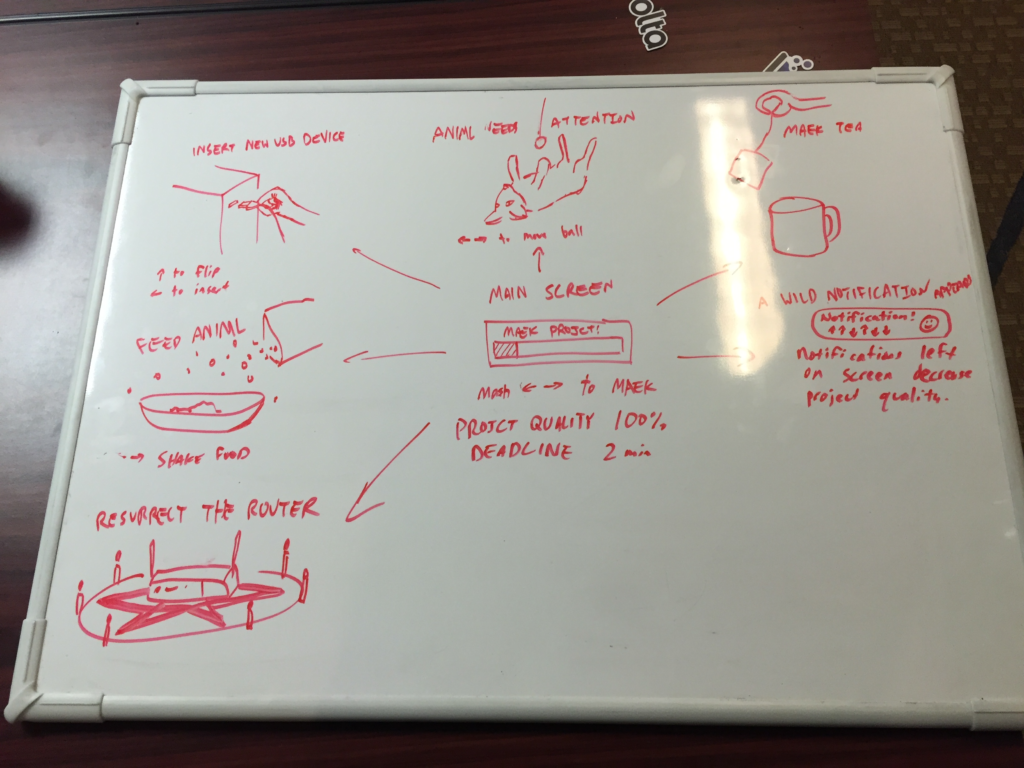 olta
INSERT NEW USB DEVICE
↑ to flip
← to insert
ANIML NEED ATTENTION
← → to move ball
MAEK TEA
FEED ANIML
← → SHAKE FOOD
MAIN SCREEN
MAEK PROJECT!
Mash ← → to MAEK
PROJCT QUALITY 100%
DEADLINE 2 min
A WILD NOTIFICATION APPEARS
Notification!
notifications left
on screen decrease
project quality.
RESURRECT THE ROUTER